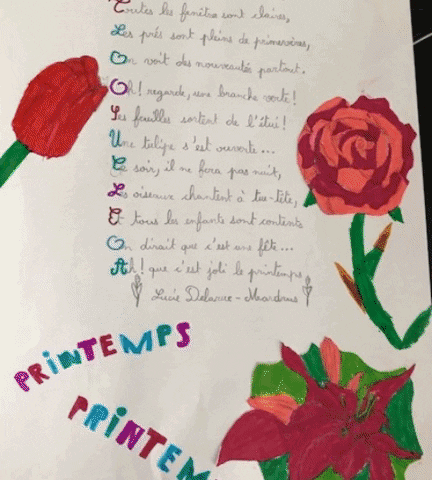 Toutes les fenêtre sont claires,
Les prés sont pleins de primevères,
On voit des nouveautés partout.
Oh! regarde, une branche verte!
Les feuilles sortent de l'étui!
Une tulipe s'est ouverte...
Ce soir, il ne fera pas nuit,
Les oiseaux chantent à tue-tête,
Et tous les enfants sont contents
On dirait que c'est une fête...
Ah! que c'est joli le printemps
Lucie Delarue-Mardrus
PRINTEMPS
PRINTEM